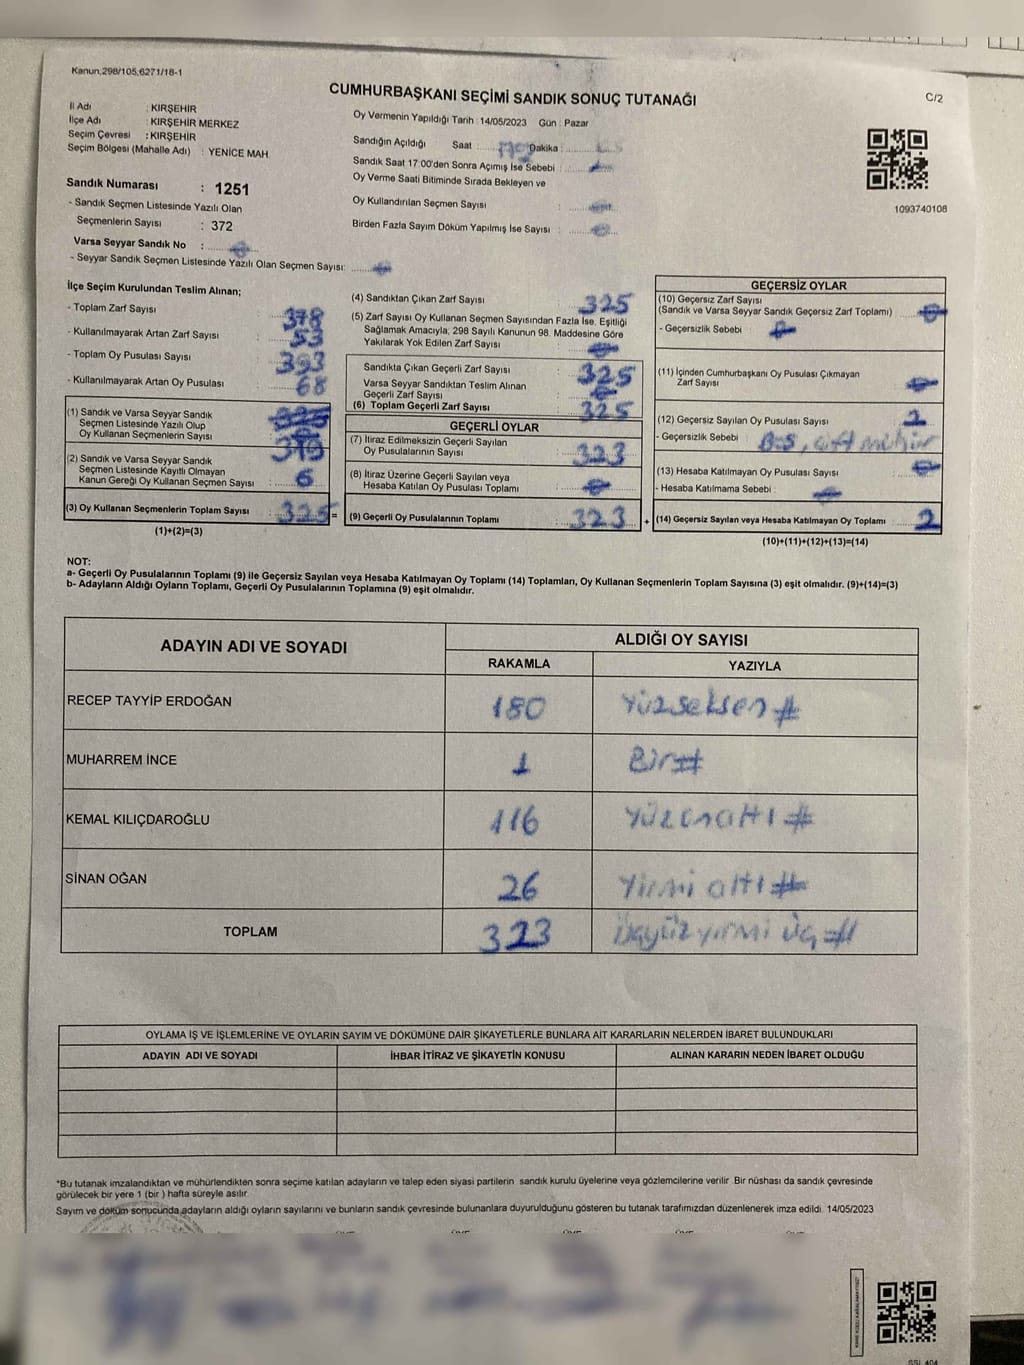 Kanun;298/105;6271/18-1
CUMHURBAŞKANI SEÇİMİ SANDIK SONUÇ TUTANAĞI
C/2
İl Adı : KIRŞEHİR
İlçe Adı : KIRŞEHİR MERKEZ
Seçim Çevresi : KIRŞEHİR
Seçim Bölgesi (Mahalle Adı) : YENİCE MAH
Sandık Numarası : 1251
- Sandık Seçmen Listesinde Yazılı Olan
Seçmenlerin Sayısı : 372
Varsa Seyyar Sandık No :
- Seyyar Sandık Seçmen Listesinde Yazılı Olan Seçmen Sayısı:
Oy Vermenin Yapıldığı Tarih :14/05/2023 Gün : Pazar
Sandığın Açıldığı Saat Dakika :
Sandık Saat 17:00'den Sonra Açımış İse Sebebi :
Oy Verme Saati Bitiminde Sırada Bekleyen ve
Oy Kullandırılan Seçmen Sayısı :
Birden Fazla Sayım Döküm Yapılmış İse Sayısı :
1093740108
İlçe Seçim Kurulundan Teslim Alınan;
- Toplam Zarf Sayısı : 378
- Kullanılmayarak Artan Zarf Sayısı : 53
- Toplam Oy Pusulası Sayısı : 393
- Kullanılmayarak Artan Oy Pusulası : 68
(1) Sandık ve Varsa Seyyar Sandık
Seçmen Listesinde Yazılı Olup
Oy Kullanan Seçmenlerin Sayısı :
(2) Sandık ve Varsa Seyyar Sandık
Seçmen Listesinde Kayıtlı Olmayan
Kanun Gereği Oy Kullanan Seçmen Sayısı : 6
(3) Oy Kullanan Seçmenlerin Toplam Sayısı : 325 =
(1)+(2)=(3)
(4) Sandıktan Çıkan Zarf Sayısı : 325
(5) Zarf Sayısı Oy Kullanan Seçmen Sayısından Fazla İse, Eşitliği
Sağlamak Amacıyla; 298 Sayılı Kanunun 98. Maddesine Göre
Yakılarak Yok Edilen Zarf Sayısı :
Sandıkta Çıkan Geçerli Zarf Sayısı : 325
Varsa Seyyar Sandıktan Teslim Alınan
Geçerli Zarf Sayısı :
(6) Toplam Geçerli Zarf Sayısı : 325
GEÇERLİ OYLAR
(7) İtiraz Edilmeksizin Geçerli Sayılan
Oy Pusulalarının Sayısı : 323
(8) İtiraz Üzerine Geçerli Sayılan veya
Hesaba Katılan Oy Pusulası Toplamı :
(9) Geçerli Oy Pusulalarının Toplamı : 323 +
GEÇERSİZ OYLAR
(10) Geçersiz Zarf Sayısı
(Sandık ve Varsa Seyyar Sandık Geçersiz Zarf Toplamı) :
- Geçersizlik Sebebi :
(11) İçinden Cumhurbaşkanı Oy Pusulası Çıkmayan
Zarf Sayısı :
(12) Geçersiz Sayılan Oy Pusulası Sayısı : 2
- Geçersizlik Sebebi : Boş, çift mühür
(13) Hesaba Katılmayan Oy Pusulası Sayısı :
- Hesaba Katılmama Sebebi :
(14) Geçersiz Sayılan veya Hesaba Katılmayan Oy Toplamı : 2
(10)+(11)+(12)+(13)=(14)
NOT:
a- Geçerli Oy Pusulalarının Toplamı (9) ile Geçersiz Sayılan veya Hesaba Katılmayan Oy Toplamı (14) Toplamları, Oy Kullanan Seçmenlerin Toplam Sayısına (3) eşit olmalıdır. (9)+(14)=(3)
b- Adayların Aldığı Oyların Toplamı, Geçerli Oy Pusulalarının Toplamına (9) eşit olmalıdır.
ADAYIN ADI VE SOYADI ALDIĞI OY SAYISI
RAKAMLA YAZIYLA
RECEP TAYYİP ERDOĞAN 180 Yüzseksen #
MUHARREM İNCE 1 Bir #
KEMAL KILIÇDAROĞLU 116 Yüzonaltı #
SİNAN OĞAN 26 Yirmi altı #
TOPLAM 323 Üçyüzyirmi üç #
OYLAMA İŞ VE İŞLEMLERİNE VE OYLARIN SAYIM VE DÖKÜMÜNE DAİR ŞİKAYETLERLE BUNLARA AİT KARARLARIN NELERDEN İBARET BULUNDUKLARI
ADAYIN ADI VE SOYADI İHBAR İTİRAZ VE ŞİKAYETİN KONUSU ALINAN KARARIN NEDEN İBARET OLDUĞU
*Bu tutanak imzalandıktan ve mühürlendikten sonra seçime katılan adayların ve talep eden siyasi partilerin sandık kurulu üyelerine veya gözlemcilerine verilir. Bir nüshası da sandık çevresinde
görülecek bir yere 1 (bir ) hafta süreyle asılır.
Sayım ve döküm sonucunda adayların aldığı oyların sayılarını ve bunların sandık çevresinde bulunanlara duyurulduğunu gösteren bu tutanak tarafımızdan düzenlenerek imza edildi. 14/05/2023